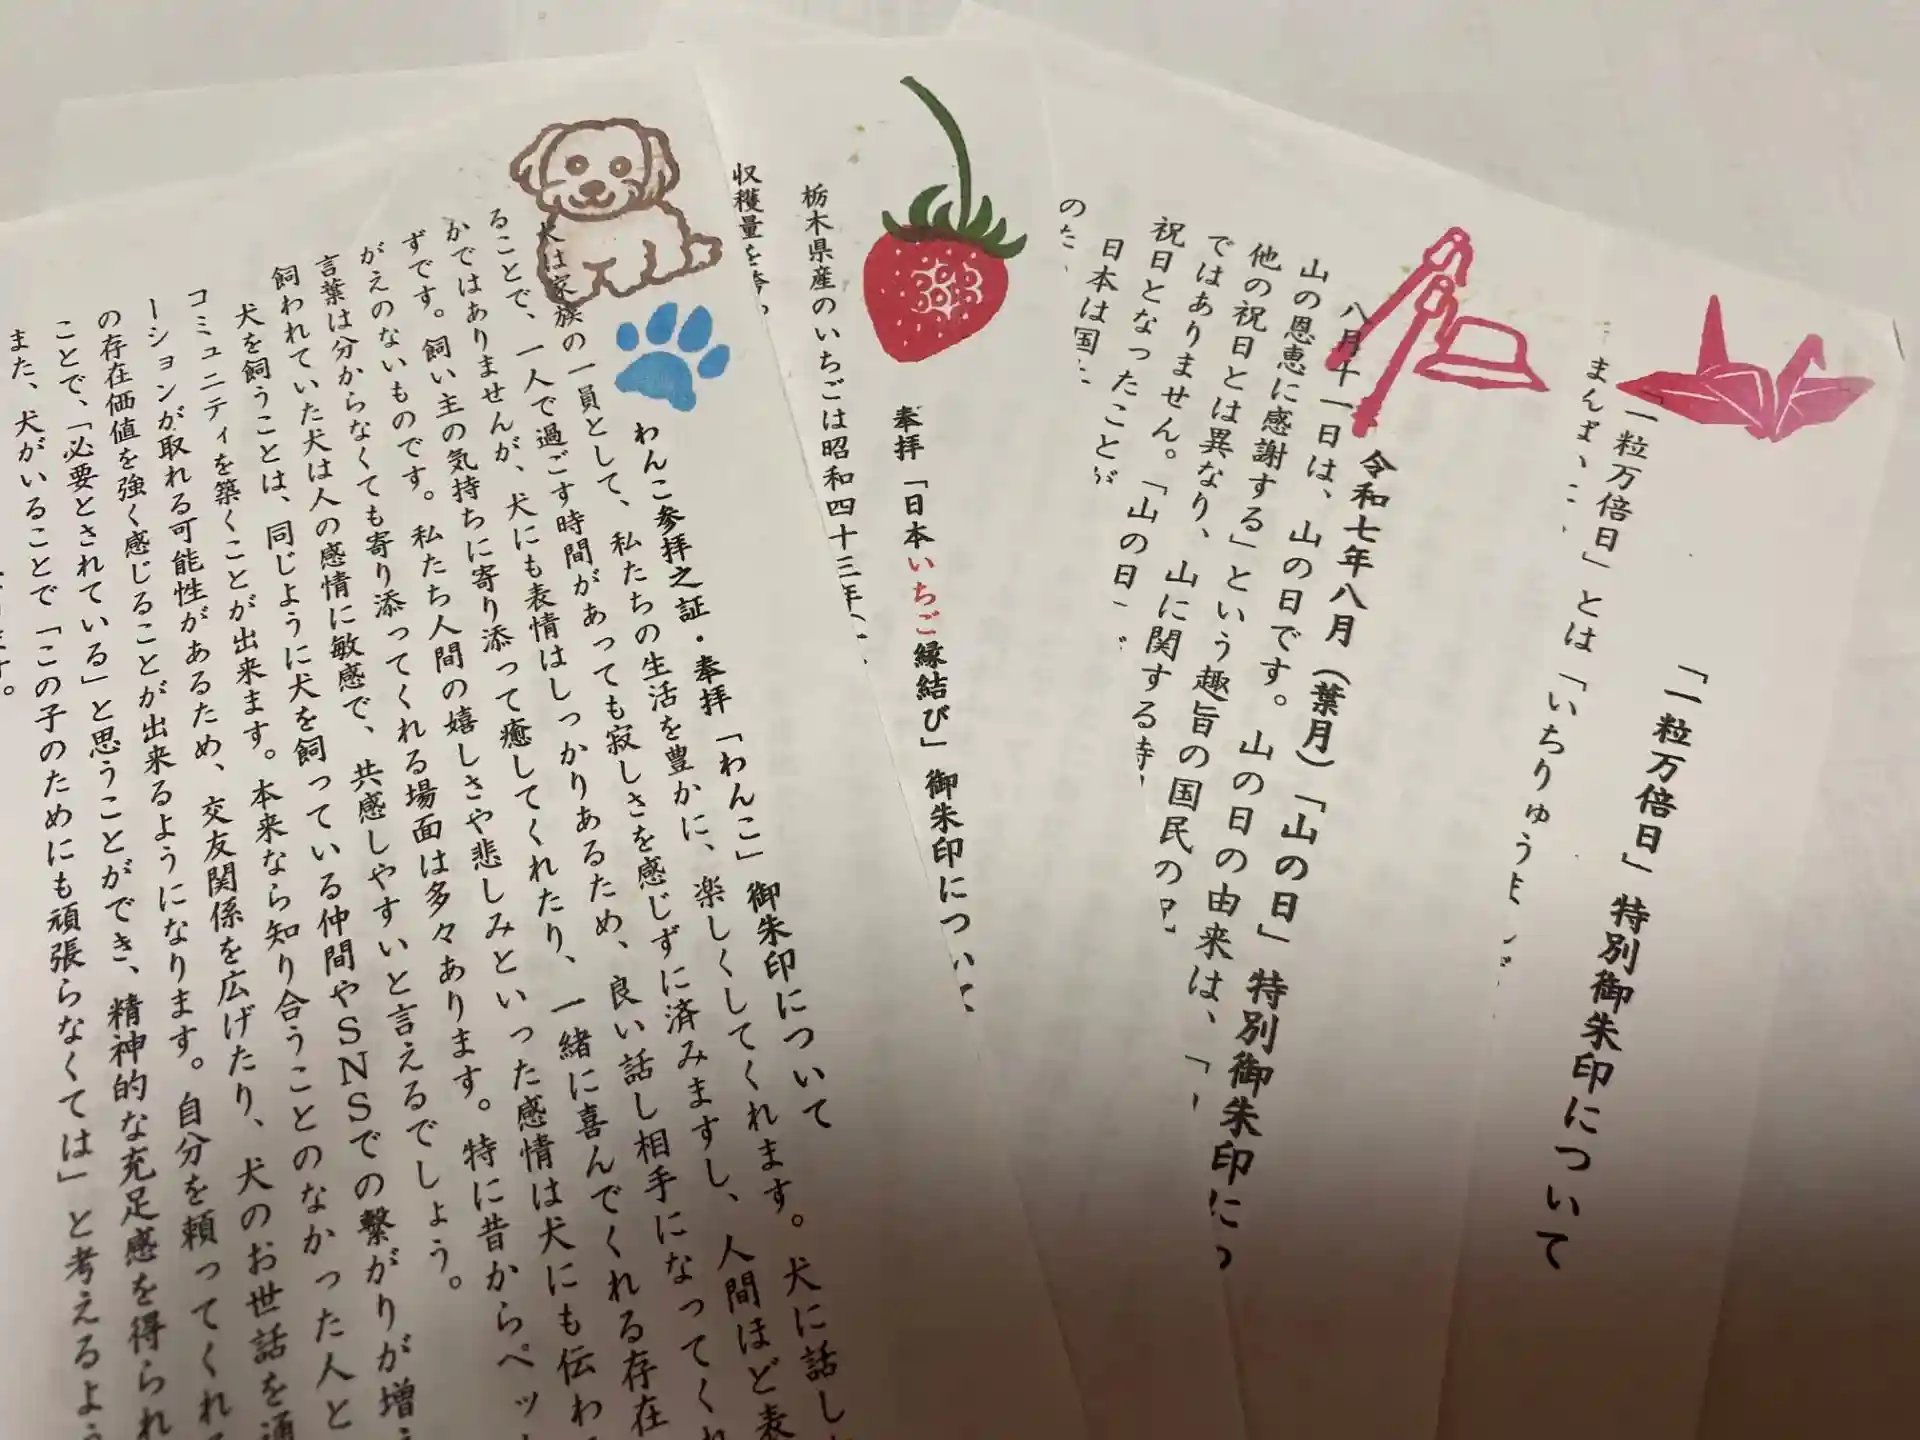 「一粒万倍日」特別御朱印について
「一粒万倍日」とは「いちりゅう
まんば
令和七年八月（葉月）「山の日」特別御朱印につ
八月十一日は、山の日です。山の日の由来は、「
山の恩恵に感謝する」という趣旨の国民の
他の祝日とは異なり、山に関する特
ではありません。「山の日
祝日となったことが
日本は国
のた
奉拝「日本いちご縁結び」御朱印について
栃木県産のいちごは昭和四十三年
収穫量を誇
わんこ参拝之証・奉拝「わんこ」御朱印について
犬は家族の一員として、私たちの生活を豊かに、楽しくしてくれます。犬に話し
ることで、一人で過ごす時間があっても寂しさを感じずに済みますし、人間ほど表
かではありませんが、犬にも表情はしっかりあるため、良い話し相手になってくれ
ずです。飼い主の気持ちに寄り添って癒してくれたり、一緒に喜んでくれる存在
がえのないものです。私たち人間の嬉しさや悲しみといった感情は犬にも伝わ
言葉は分からなくても寄り添ってくれる場面は多々あります。特に昔からペッ
飼われていた犬は人の感情に敏感で、共感しやすいと言えるでしょう。
犬を飼うことは、同じように犬を飼っている仲間やSNSでの繋がりが増え
コミュニティを築くことが出来ます。本来なら知り合うことのなかった人と
ーションが取れる可能性があるため、交友関係を広げたり、犬のお世話を通
の存在価値を強く感じることが出来るようになります。自分を頼ってくれ
ことで、「必要とされている」と思うことができ、精神的な充足感を得られ
また、犬がいることで「この子のためにも頑張らなくては」と考えるよう
ます。